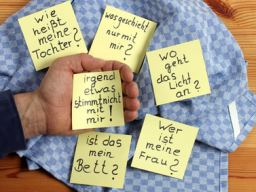 Wie
heißt
meine
Tochter?
was geschieht
nur mit
mir?
Wo
geht
das
Licht
an?
irgend
etwas
stimmt nicht
mit
mir!
ist das
mein
Bett?
Wer
ist meine
Frau?